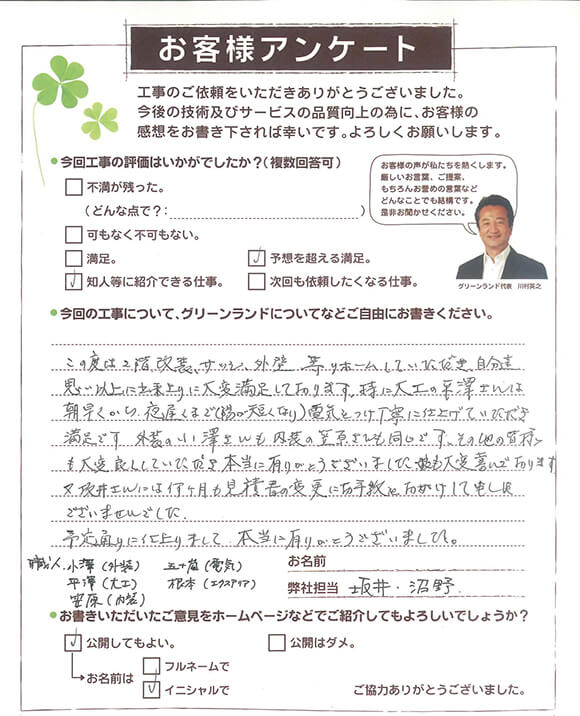 お客様アンケート
工事のご依頼をいただきありがとうございました。
今後の技術及びサービスの品質向上の為に、お客様の
感想をお書き下されば幸いです。よろしくお願いします。
●今回工事の評価はいかがでしたか？(複数回答可)
不満が残った。
(どんな点で？: )
可もなく不可もない。
満足。
✓ 予想を超える満足。
✓ 知人等に紹介できる仕事。
次回も依頼したくなる仕事。
お客様の声が私たちを熱くします。
厳しいお言葉、ご提案、
もちろんお誉めの言葉など
どんなことでも結構です。
是非お聞かせください。
グリーンランド代表 川村英之
●今回の工事について、グリーンランドについてなどご自由にお書きください。
この度は2階改装、サッシ、外壁 等リホームしていただき、自分達
思い以上に出来上りに大変満足しております。特に大工の平澤さんは
朝早くから、夜遅くまで(陽が短くなり)電気をつけ丁寧に仕上げていただき
満足です 外装の小澤さんも内装の笠原さんも同じです。その他の皆様
も大変良くしていただき 本当に有りがとうございました 娘も大変喜んでおります
又坂井さんには何ヶ月も見積書の変更にお手数をおかけして申し訳
ございませんでした
予定通りに仕上りまして 本当に有りがとうございました。
職人 小澤(外装) 五十嵐(電気)
平澤(大工) 根本(エクステリア)
笠原(内装)
お名前
弊社担当 坂井・沼野
●お書きいただいたご意見をホームページなどでご紹介してもよろしいでしょうか？
✓ 公開してもよい。
公開はダメ。
→お名前は
フルネームで
✓ イニシャルで
ご協力ありがとうございました。